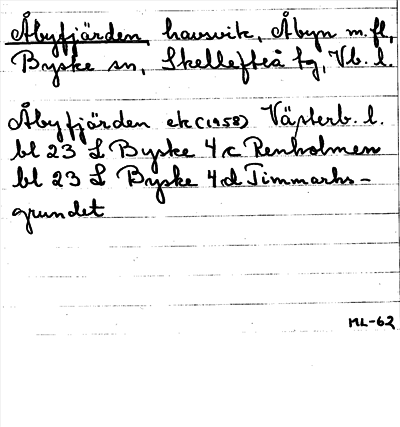 Åbyfjärden, havsvik, Åbyn m.fl,
Byske sn, Skellefteå tg, Vb. l.
Åbyfjärden ek (1958) Västerb. l.
bl 23 L Byske 4 c Renholmen
bl 23 L Byske 4 d Timmarhs-
grundet
ML-62